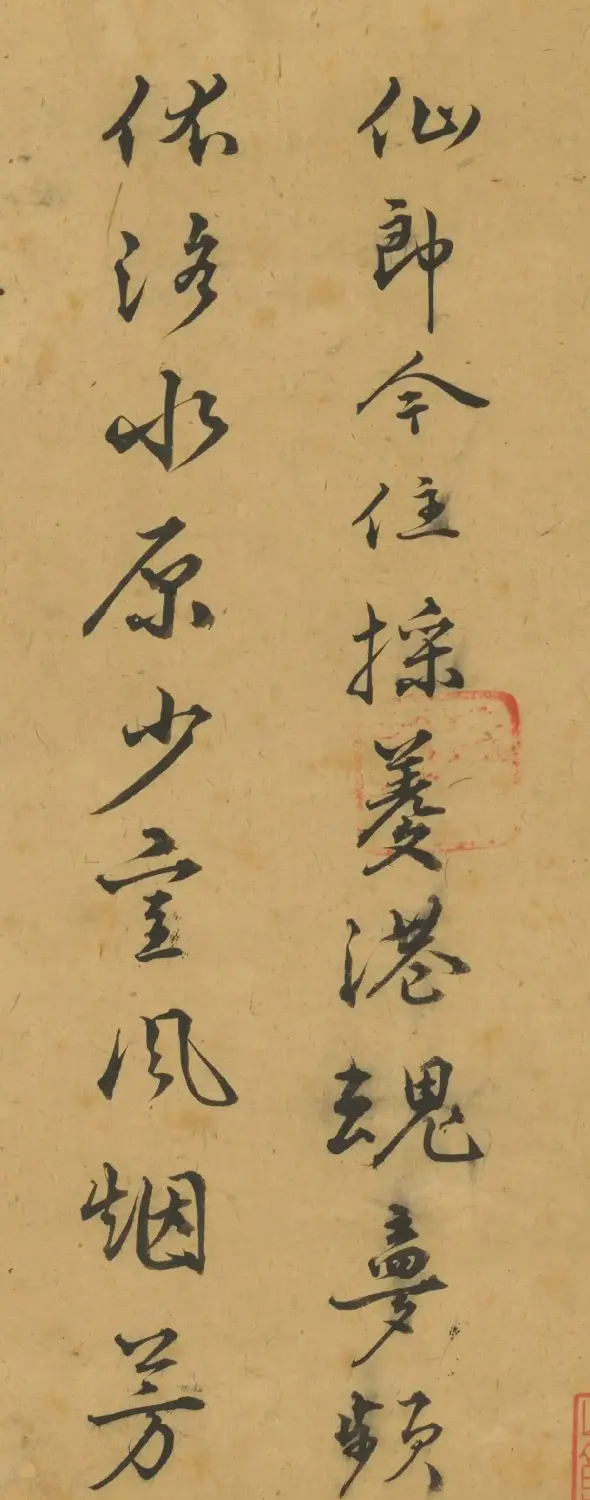 仙郎今住採菱港魂夢頻
依洛水原少室風烟芳